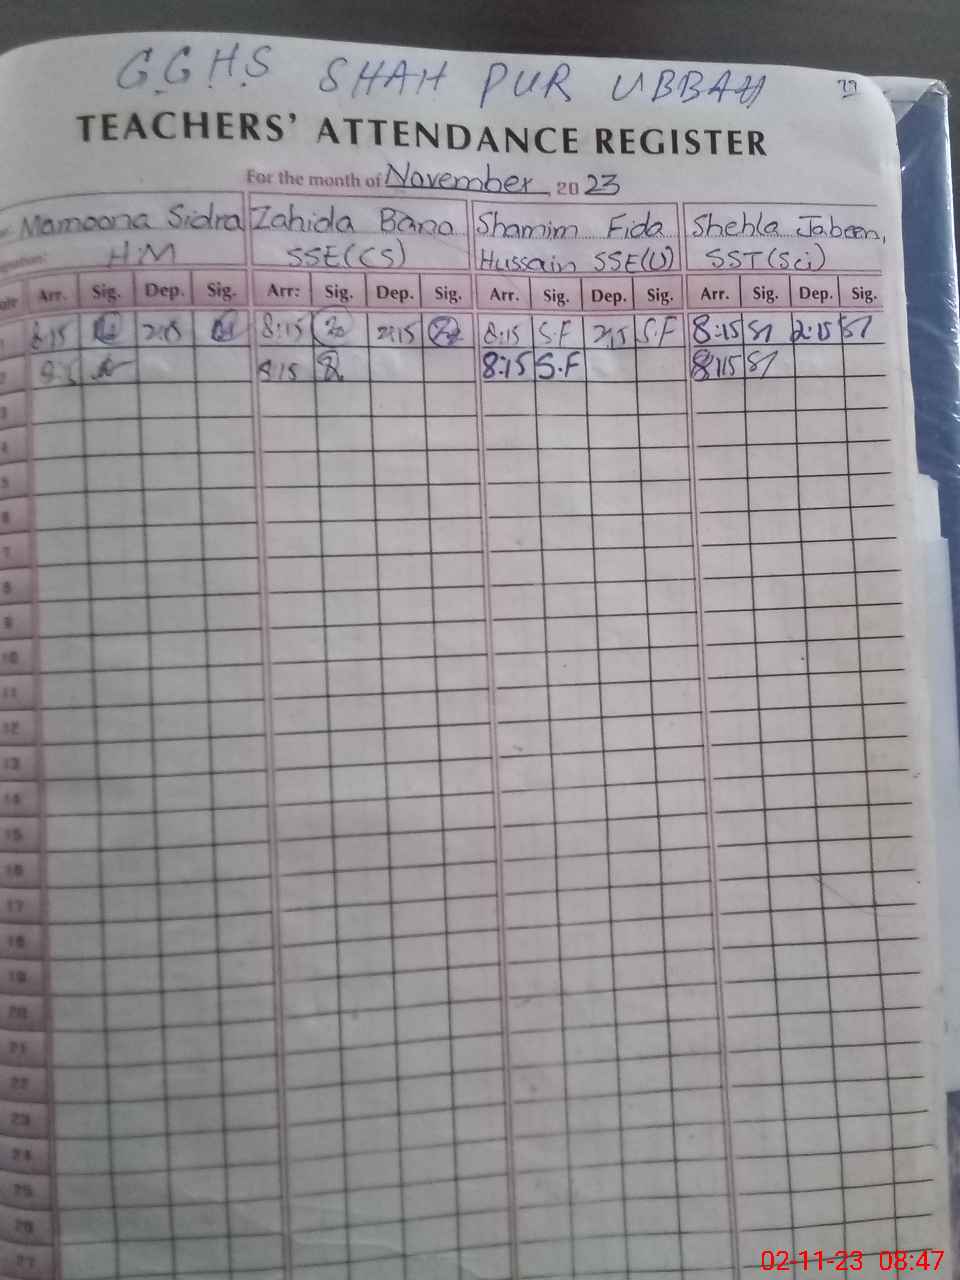 G.G.H.S SHAH PUR UBBAH
77
TEACHERS' ATTENDANCE REGISTER
For the month of November, 2023
Mamoona Sidra Zahida Bano Shamim Fida Shehla Jabeen,
HM SSE(CS) Hussain SSE(U) SST(Sci)
Arr. Sig. Dep. Sig. Arr: Sig. Dep. Sig. Arr. Sig. Dep. Sig. Arr. Sig. Dep. Sig.
1 8:15 2:15 8:15 2:15 8:15 S.F 2:15 S.F 8:15 SJ 2:15 SJ
2 8:15 8:15 S.F 8:15 SJ
3
4
5
6
7
8
9
10
11
12
13
14
15
16
17
18
19
20
21
22
23
24
25
26
27
02-11-23 08:47